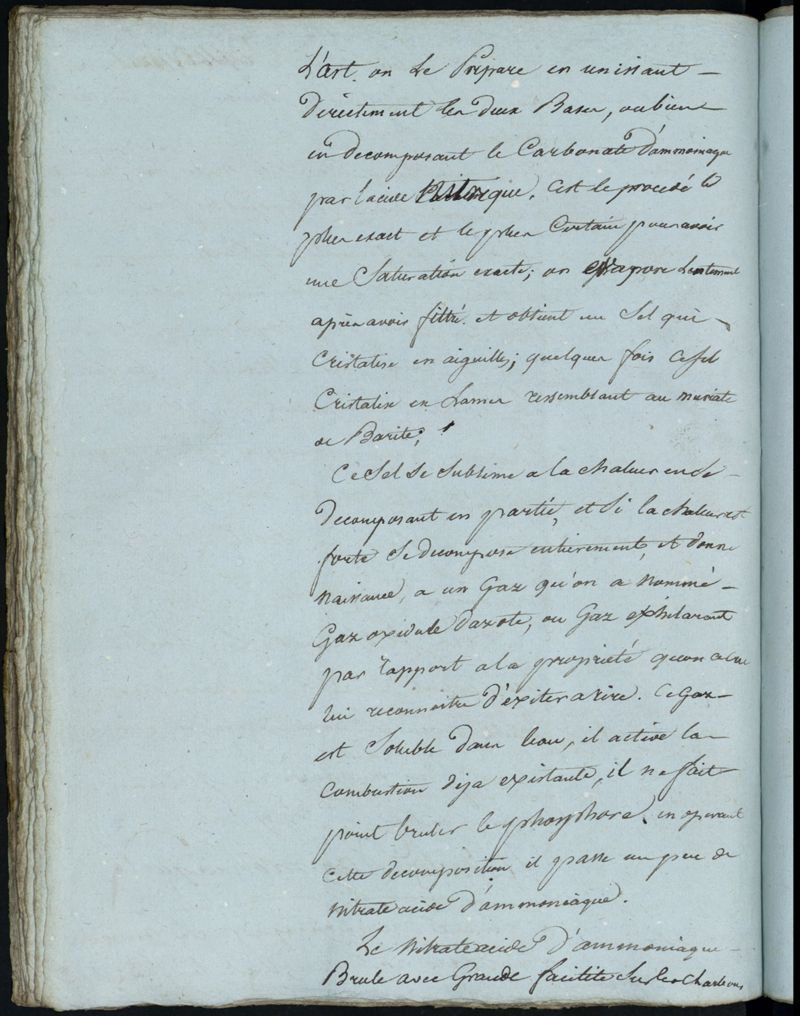 L'art. on le Prépare en unissant
Directement les deux Bases, oubien
en decomposant le Carbonate d'ammoniaque
par lacide Nitrique. Cest le procedé le
plus exact et le plus Certain pour avoir
une Saturation exacte; on evapore Lentement
après avoir filtré. et obtient un Sel qui
Cristalise en aiguilles; quelques fois ce sel
Cristalise en Lames ressemblant au muriate
de Barite;
Ce Sel se Sublime a la chaleur en se
decomposant en partie, et Si la chaleur est
forte se decompose entièrement, et donne
Naissance, a un Gaz qu'on a nommé
Gaz oxidule d'azote, ou Gaz exhilarant
par rapport a la propriété quon a cru
lui reconnoitre d'exiter a rire. Ce Gaz
est Soluble dans leau, il active la
Combustion deja existante, il ne fait
point bruler le phosphore. en operant
Cette decomposition il passe un peu de
nitrate acide d'ammoniaque.
Le nitrate acide d'ammoniaque
Brule avec Grande facilite Sur les Charbons